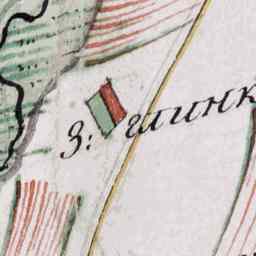 З: глинк